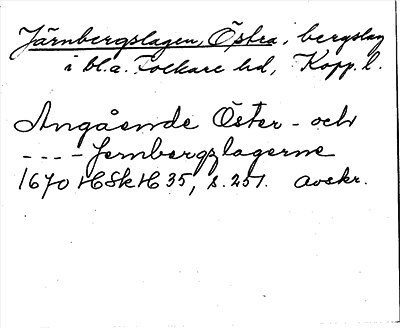 Järnbergslagen, Östra, bergslag
i bl.a. Folkare hd, Kopp. l.
Angående Öster- och
---- Jernbergzlagerne
1670 HSkH 35, s. 251. Avskr.